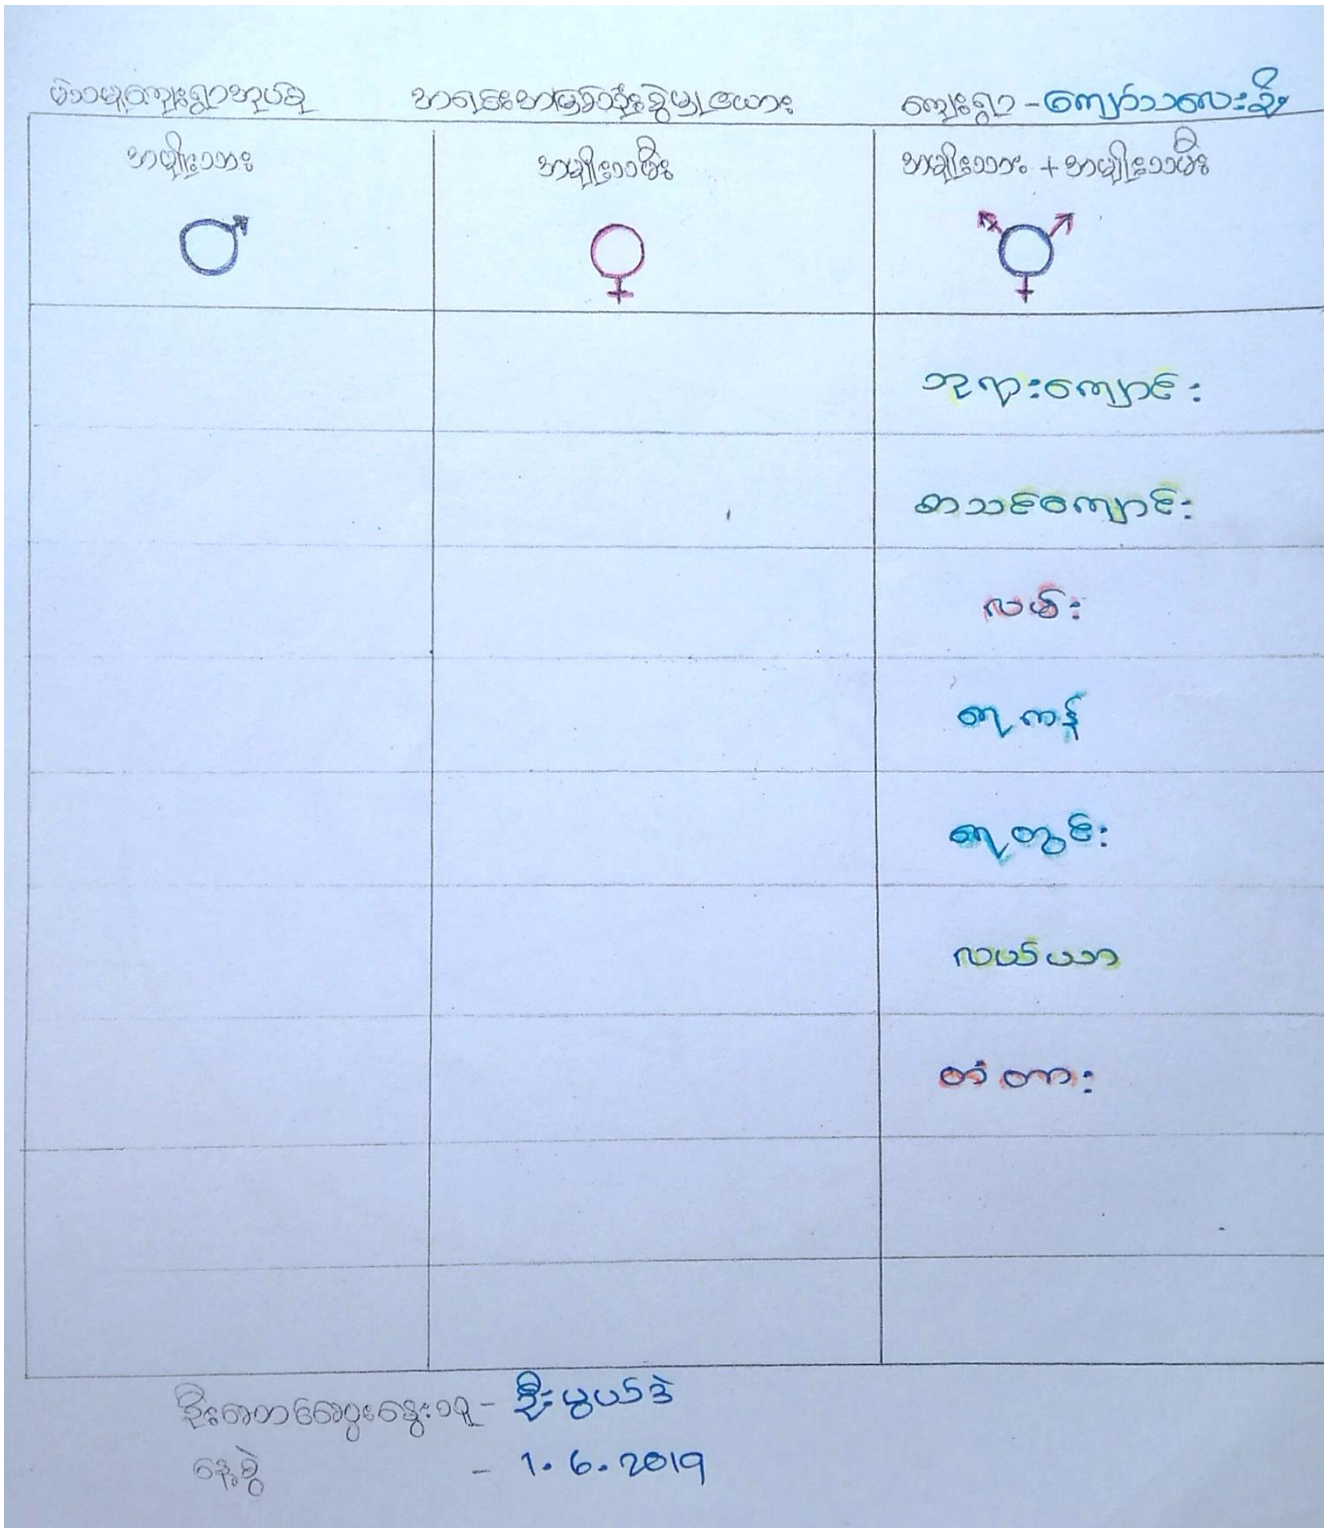 မဲသမုကျေးရွာအုပ်စု အရင်းအမြစ်သုံးစွဲမှုဇယား ကျေးရွာ - ကျော်သလေးခိုး
အမျိုးသား အမျိုးသမီး အမျိုးသား + အမျိုးသမီး
ဘုရားကျောင်း
စာသင်ကျောင်း
လမ်း
ရေကန်
ရေတွင်း
လယ်ယာ
တံတား
ဦးဆောင်ဆွေးနွေးသူ - ဦးမွယ်ဒဲ
နေ့စွဲ - 1.6.2019